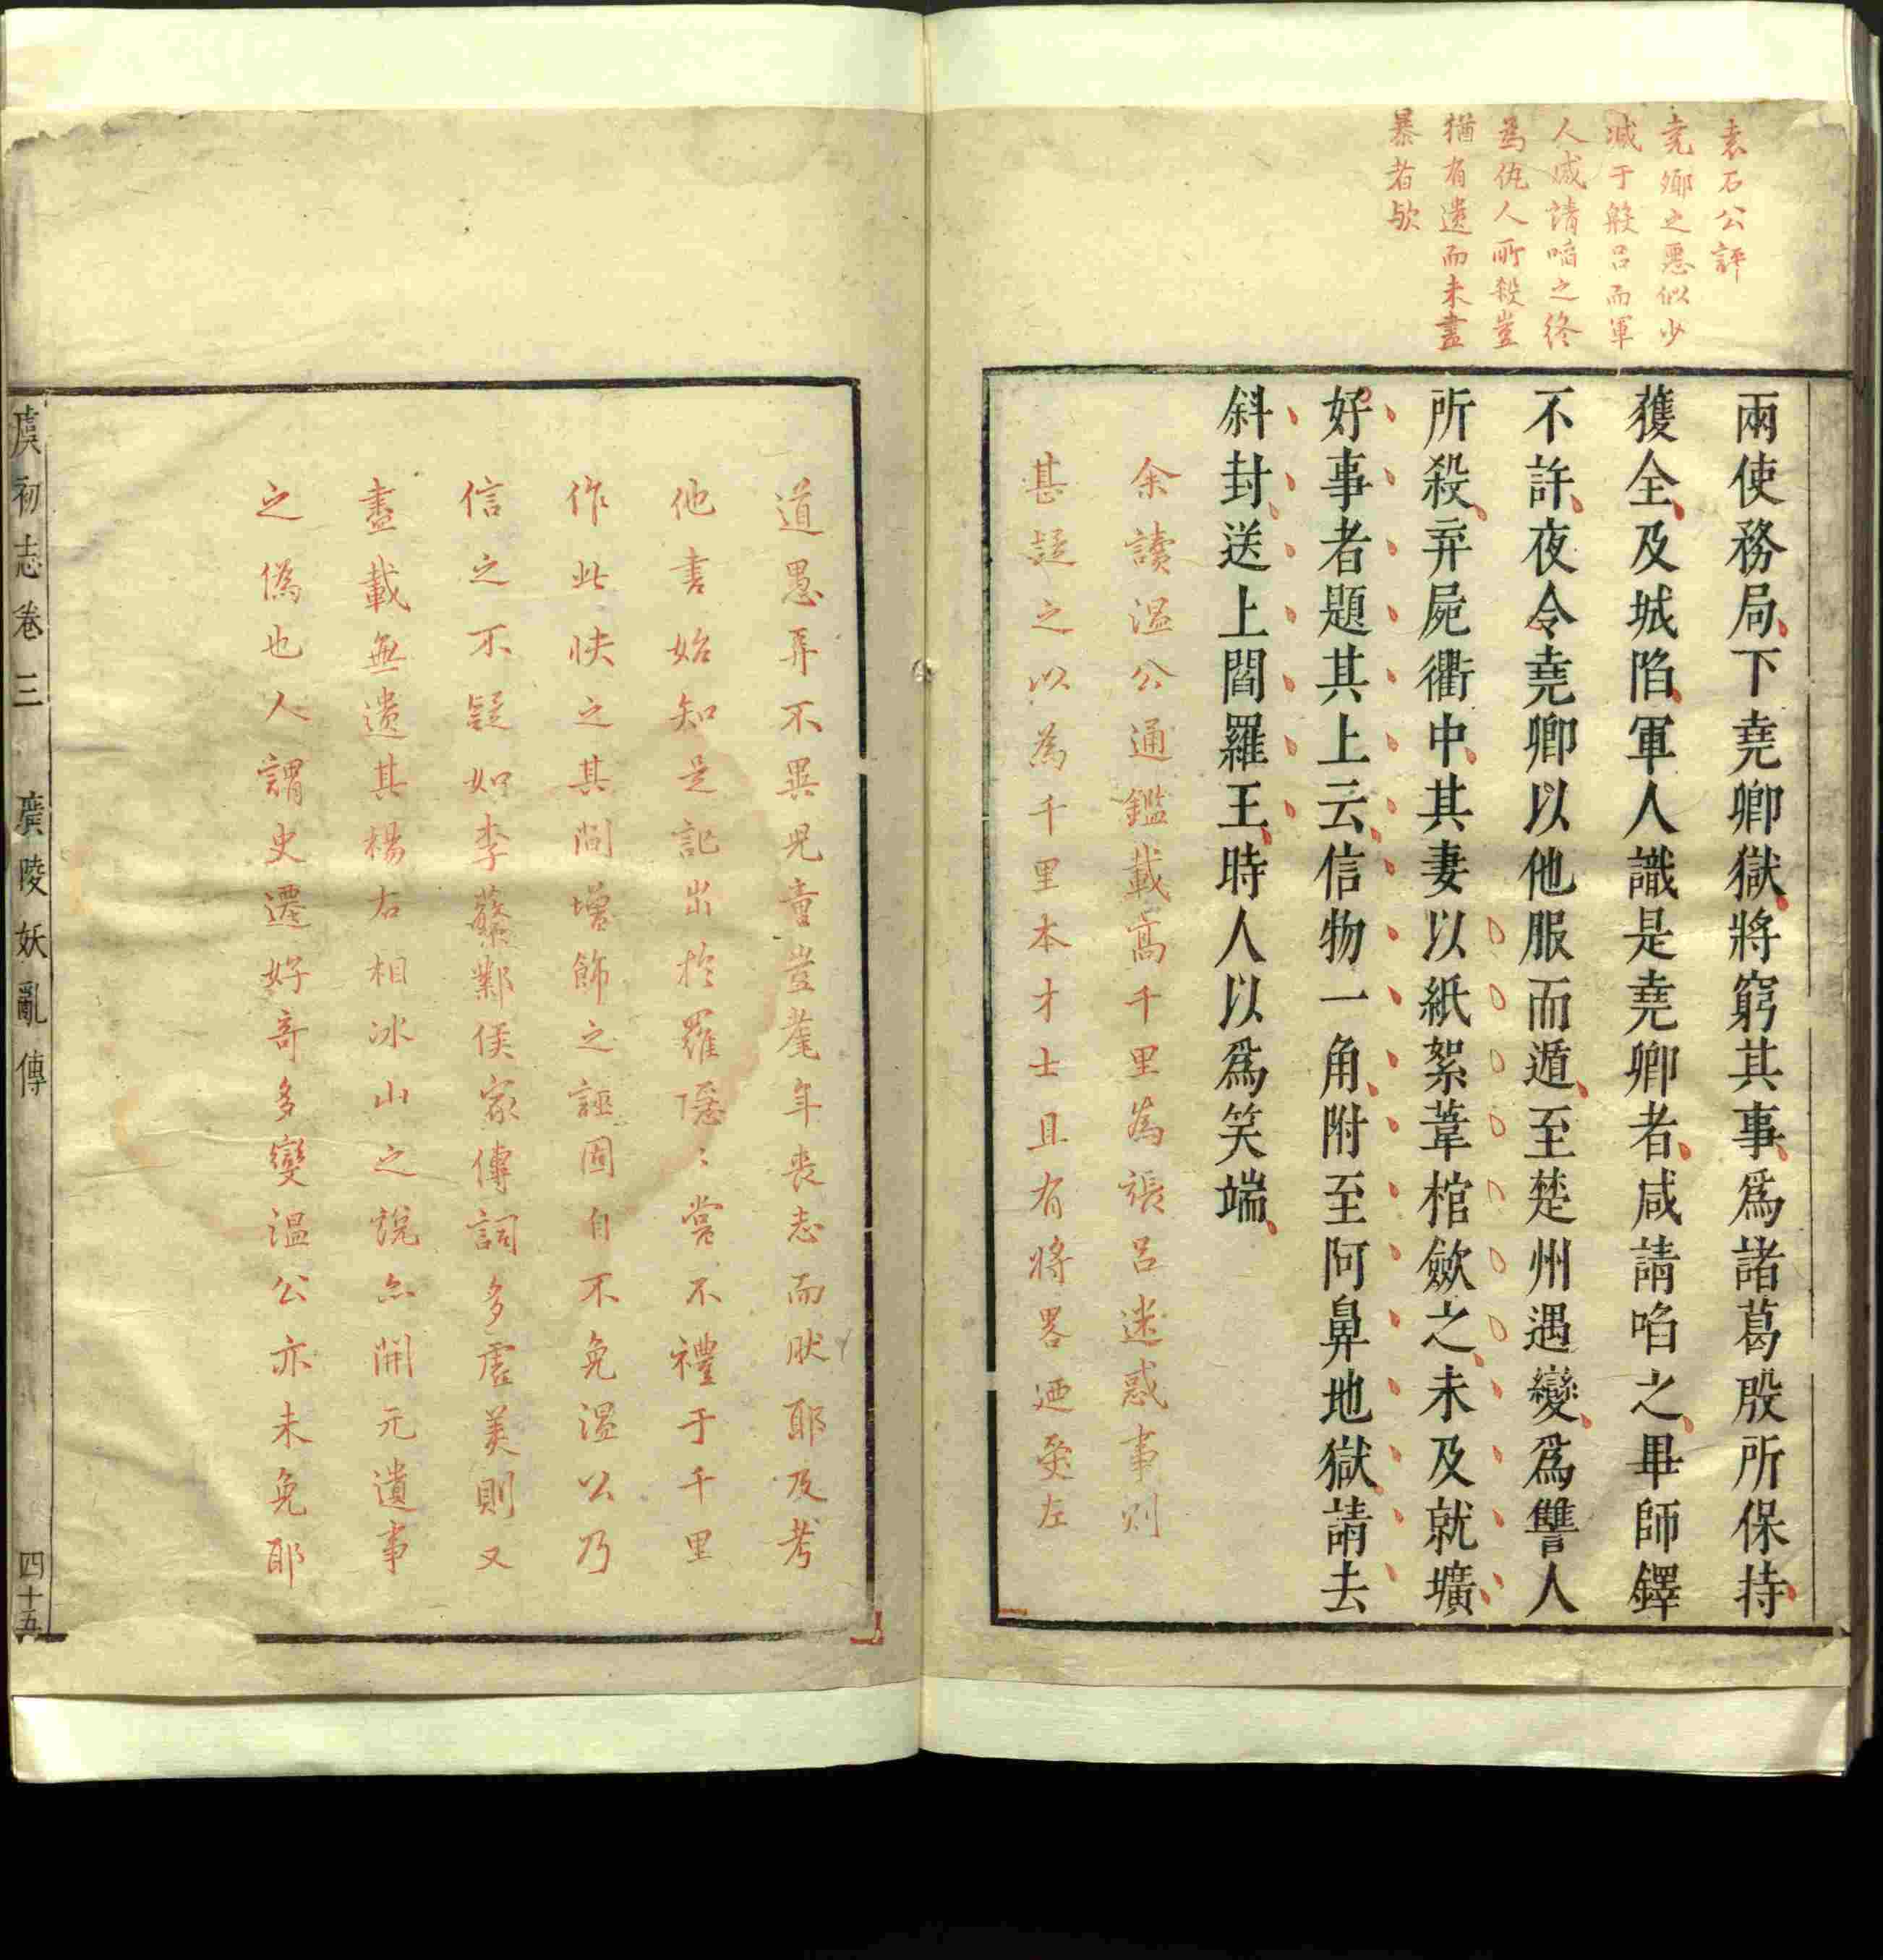 袁石公評
堯卿之惡似少
減于殷呂而軍
人咸請啗之終
為仇人所殺豈
猶有遺而未盡
暴者歟
兩使務局下堯卿獄將窮其事爲諸葛殷所保持
獲全及城陷軍人識是堯卿者咸請啗之畢師鐸
不許夜令堯卿以他服而遁至楚州遇變爲讐人
所殺弃屍衢中其妻以紙絮葦棺斂之未及就壙
好事者題其上云信物一角附至阿鼻地獄請去
斜封送上閻羅王時人以爲笑端
余讀溫公通鑑載高千里為張呂迷惑事則
甚疑之以為千里本才士且有將畧迺受左
道愚弄不異兒童豈耄年喪志而肰耶及考
他書始知是記出於羅隱〻嘗不禮于千里
作此快之其間增飾之誣固自不免溫公乃
信之不疑如李蘩鄴侯家傳詞多虛美則又
盡載無遺其楊右相冰山之說亦開元遺事
之偽也人謂史遷好奇多變溫公亦未免耶
虞初志卷三 廣陵妖亂傳 四十五